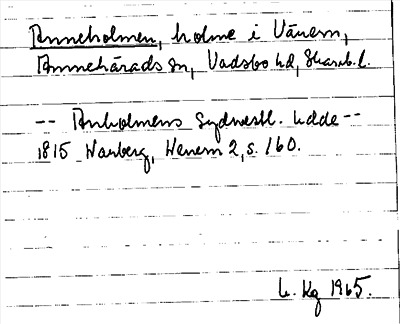 Anneholmen, holme i Vänern,
Amnehärads sn, Vadsbo hd, Skarab. l.
-- Anholmens Sydvestl. Udde --
1815 Warberg, Wenern 2, s. 160.
1965.